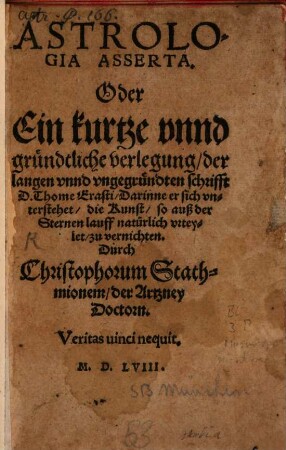 astr. P. 166.
ASTROLO-
GIA ASSERTA.
Oder
Ein kurtze vnnd
gründtliche verlegung/der
langen vnnd vngegründten schrifft
D. Thome Erasti/Darinne er sich vn-
terstehet/ die Kunst/ so auß der
Sternen lauff natürlich vrtey-
let/zu vernichten.
Durch
Christophorum Stath-
mionem/der Artzney
Doctorn.
Veritas uinci nequit.
M. D. LVIII.
SB München
63